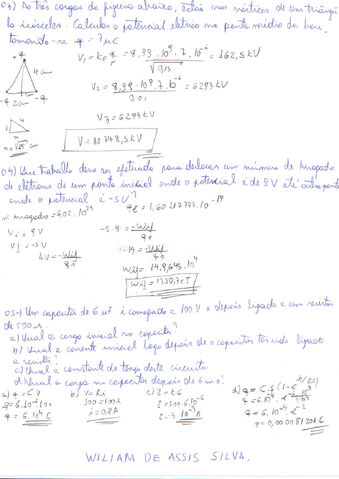 03) As três cargas da figura abaixo, estão nos vértices de um triângu
lo isósceles. Calcular o potencial elétrico no ponto médio da base,
tomando-se q = 7μC
q
4 cm
-q 2cm -q
V1 = K q/r = 8,99.10^9.7.10^-6 = 162,5 KV
√0,15
V2 = 8,99.10^9.7.10^-6 = 6293 KV
0,01
V3 = 6293 KV
V = 12748,5 KV
04) Que trabalho deve ser efetuado para deslocar um número de Avogado
de elétrons de um ponto inicial onde o potencial é de 9V até outro ponto
onde o potencial é -5V?
n avogado = 6,02.10^23
qe = 1,60217733.10^-19
Vi = 9V
Vf = -5V
ΔV = -Wif/q0
-5-9 = -Wif/q0
-14 = -Wif/q0
Wif = 14.9,645.10^4
Wif = 1350,3 kJ
05- Um capacitor de 6 μF é carregado a 100 V e depois ligado a um resistor
de 500 Ω.
a) Qual a carga inicial no capacitor?
b) Qual a corrente inicial logo depois de o capacitor ter sido ligado
ao resistor?
c) Qual a constante de tempo deste circuito.
d) Qual a carga no capacitor depois de 6 ms?
a) q = C.V
q = 6.10^-6.100
q = 6.10^-4 C
b) V = Ri
100 = 500 i
i = 0,2A
c) τ = RC
τ = 500.6.10^-6
τ = 3.10^-3 s
q = 6.10^-4.e^-2
q = 0,000081206
WILIAM DE ASSIS SILVA.